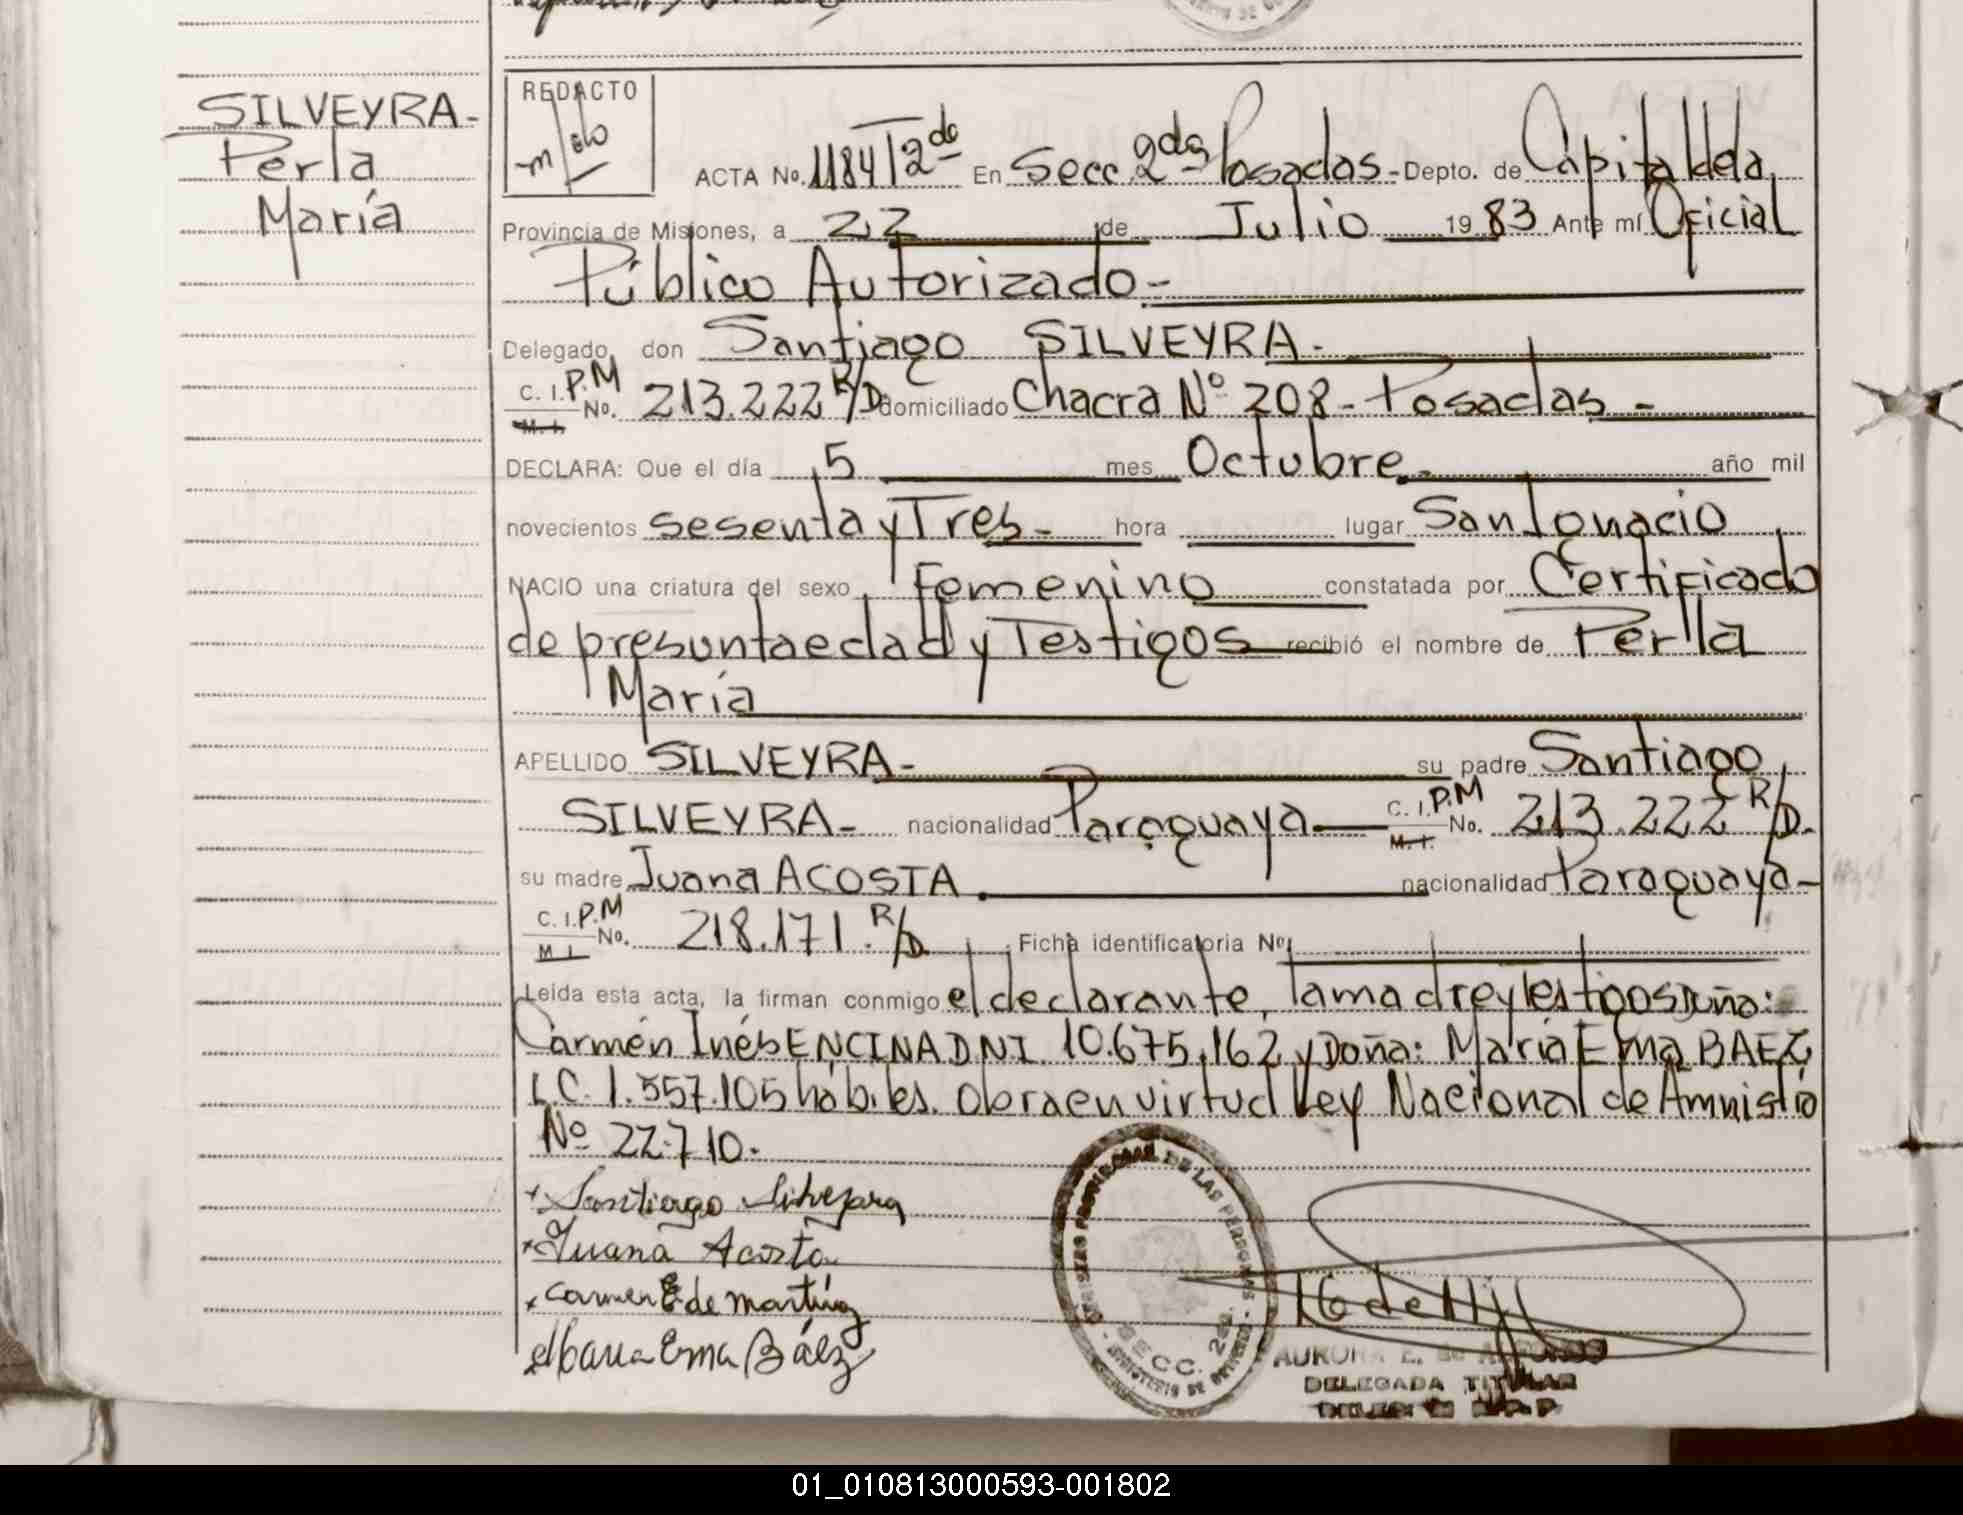 SILVEYRA-
Perla
María
REDACTO
ACTA No. 1184 T 2do En Secc. 2da Posadas - Depto. de Capital de la
Provincia de Misiones, a 22 de Julio 1983 Ante mí Oficial
Público Autorizado-
Delegado, don Santiago SILVEYRA-
C. I. P.M No. 213.222 R/D domiciliado Chacra Nº 208 - Posadas -
M. I.
DECLARA: Que el día 5 mes Octubre - año mil
novecientos sesenta y Tres - hora lugar San Ignacio
NACIO una criatura del sexo Femenino constatada por Certificado
de presunta edad y Testigos recibió el nombre de Perla
María
APELLIDO SILVEYRA - su padre Santiago
SILVEYRA - nacionalidad Paraguaya - C. I. P.M No. 213.222 R/D.
M. I.
su madre Juana ACOSTA . nacionalidad Paraguaya -
C. I. P.M No. 218.171. R/D Ficha identificatoria No.
M. I.
Leída esta acta, la firman conmigo el declarante, la madre y testigos Doña:
Carmén Inés ENCINA DNI. 10.675.162 y Doña: María Ema BAEZ
L.C. 1.557.105 hábiles. Obra en virtud Ley Nacional de Amnistía
Nº 22.710.
Santiago Silveyra
Juana Acosta
Carmen E de Martínez
Maria Ema Báez
REGISTRO PROVINCIAL DE LAS PERSONAS
SECC. 2da.
MINISTERIO DE GOBIERNO
AURORA E. de
DELEGADA TITULAR
01_010813000593-001802